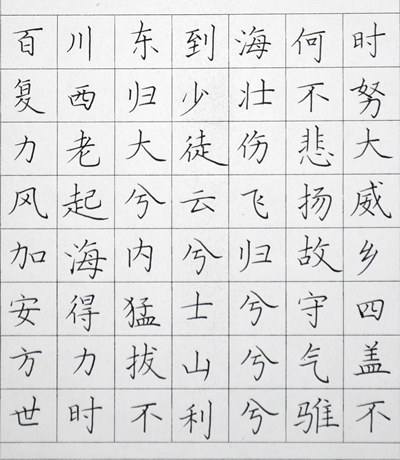 百川东到海何时
复西归少壮不努
力老大徒伤悲大
风起兮云飞扬威
加海内兮归故乡
安得猛士兮守四
方力拔山兮气盖
世时不利兮骓不